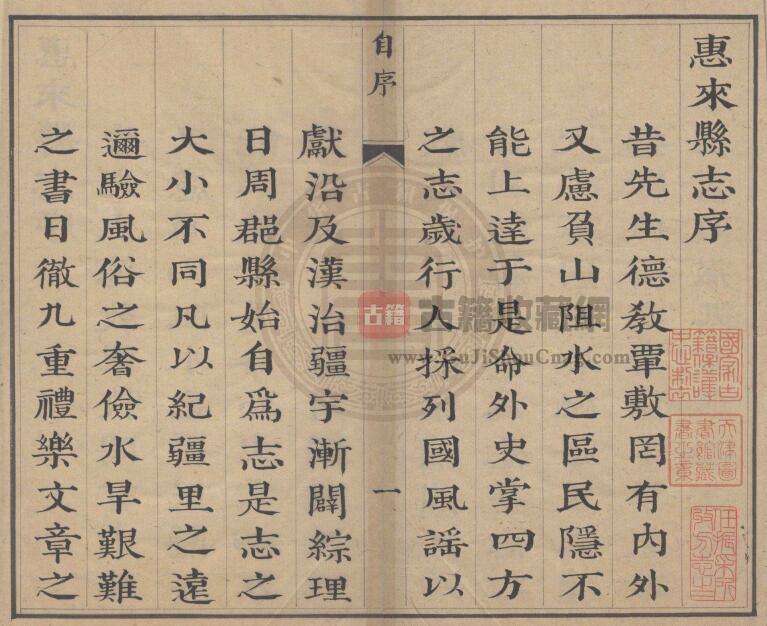 惠來縣志序
昔先生德敎覃敷罔有內外
又慮負山阻水之區民隱不
能上達于是命外史掌四方
之志歲行人採列國風謠以
自序
一
獻沿及漢治疆宇漸闢綜理
日周郡縣始自爲志是志之
大小不同凡以紀疆里之遠
邇驗風俗之奢儉水旱艱難
之書日徹九重禮樂文章之
天津圖
書館藏
書之章
古籍
古籍收藏網
www.GuJiShouCang.com